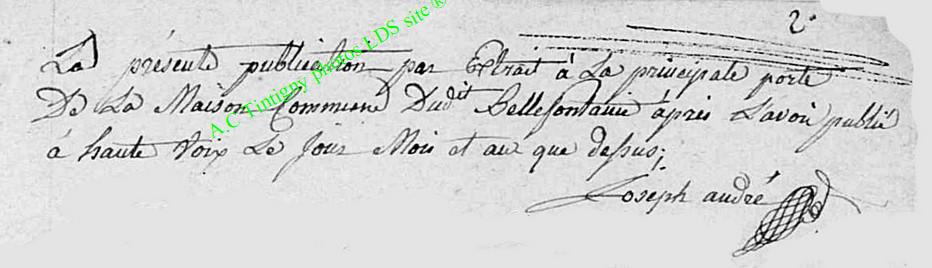 2.
La présente publication par Extrait à La principale porte
De La Maison Commune Dudit Bellefontaine après L'avoir publié
à haute Voix Le Jour Mois et an que dessus;
Joseph andré
A.C Tintigny photos LDS site ®